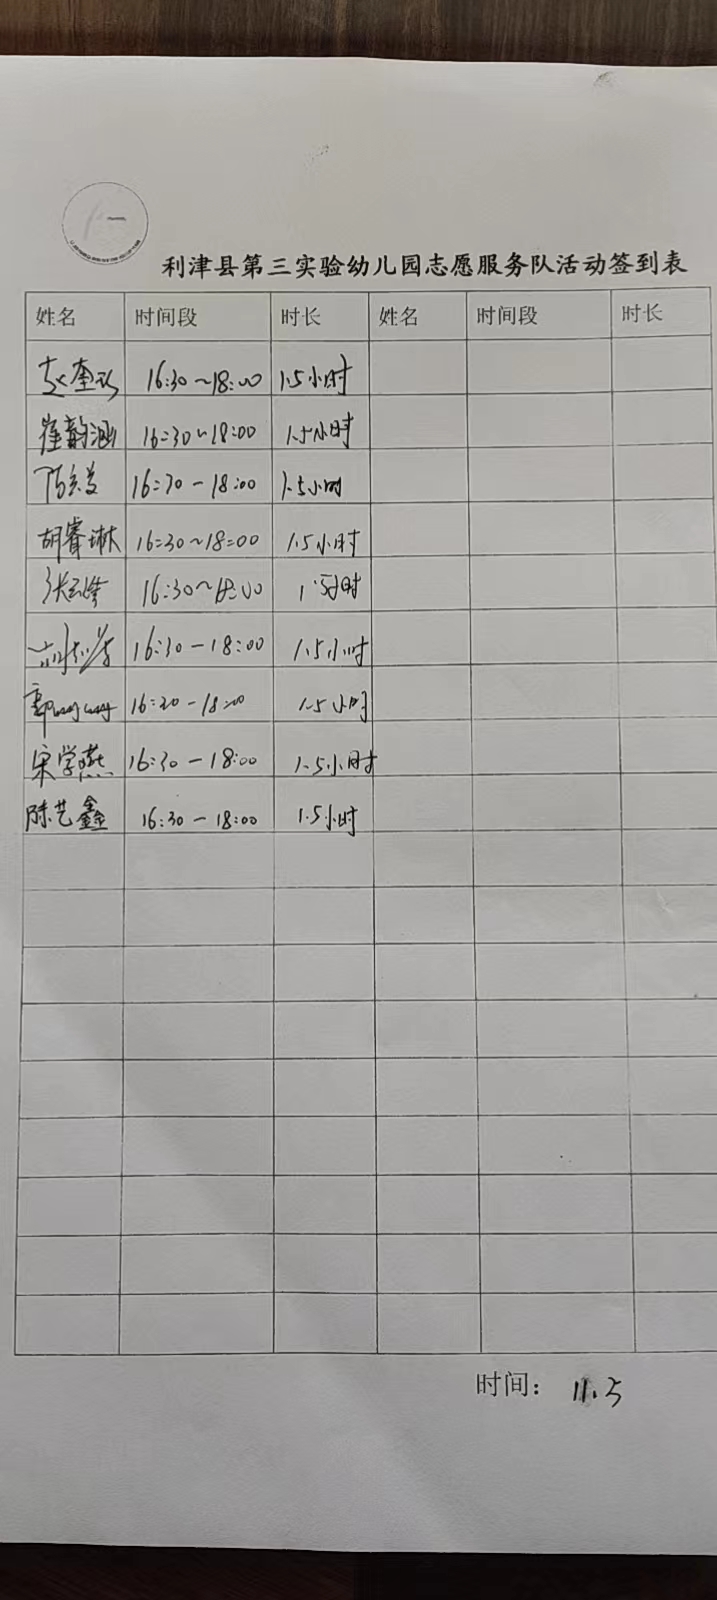 利津县第三实验幼儿园志愿服务队活动签到表
姓名 时间段 时长 姓名 时间段 时长
16:30～18:00 1.5小时
崔韵涵 16:30～18:00 1.5小时
16:30-18:00 1.5小时
胡睿琳 16:30～18:00 1.5小时
16:30～18:00 1.5小时
16:30-18:00 1.5小时
1.5小时
宋学燕 16:30-18:00 1.5小时
陈艺鑫 16:30-18:00 1.5小时
时间： 11.5